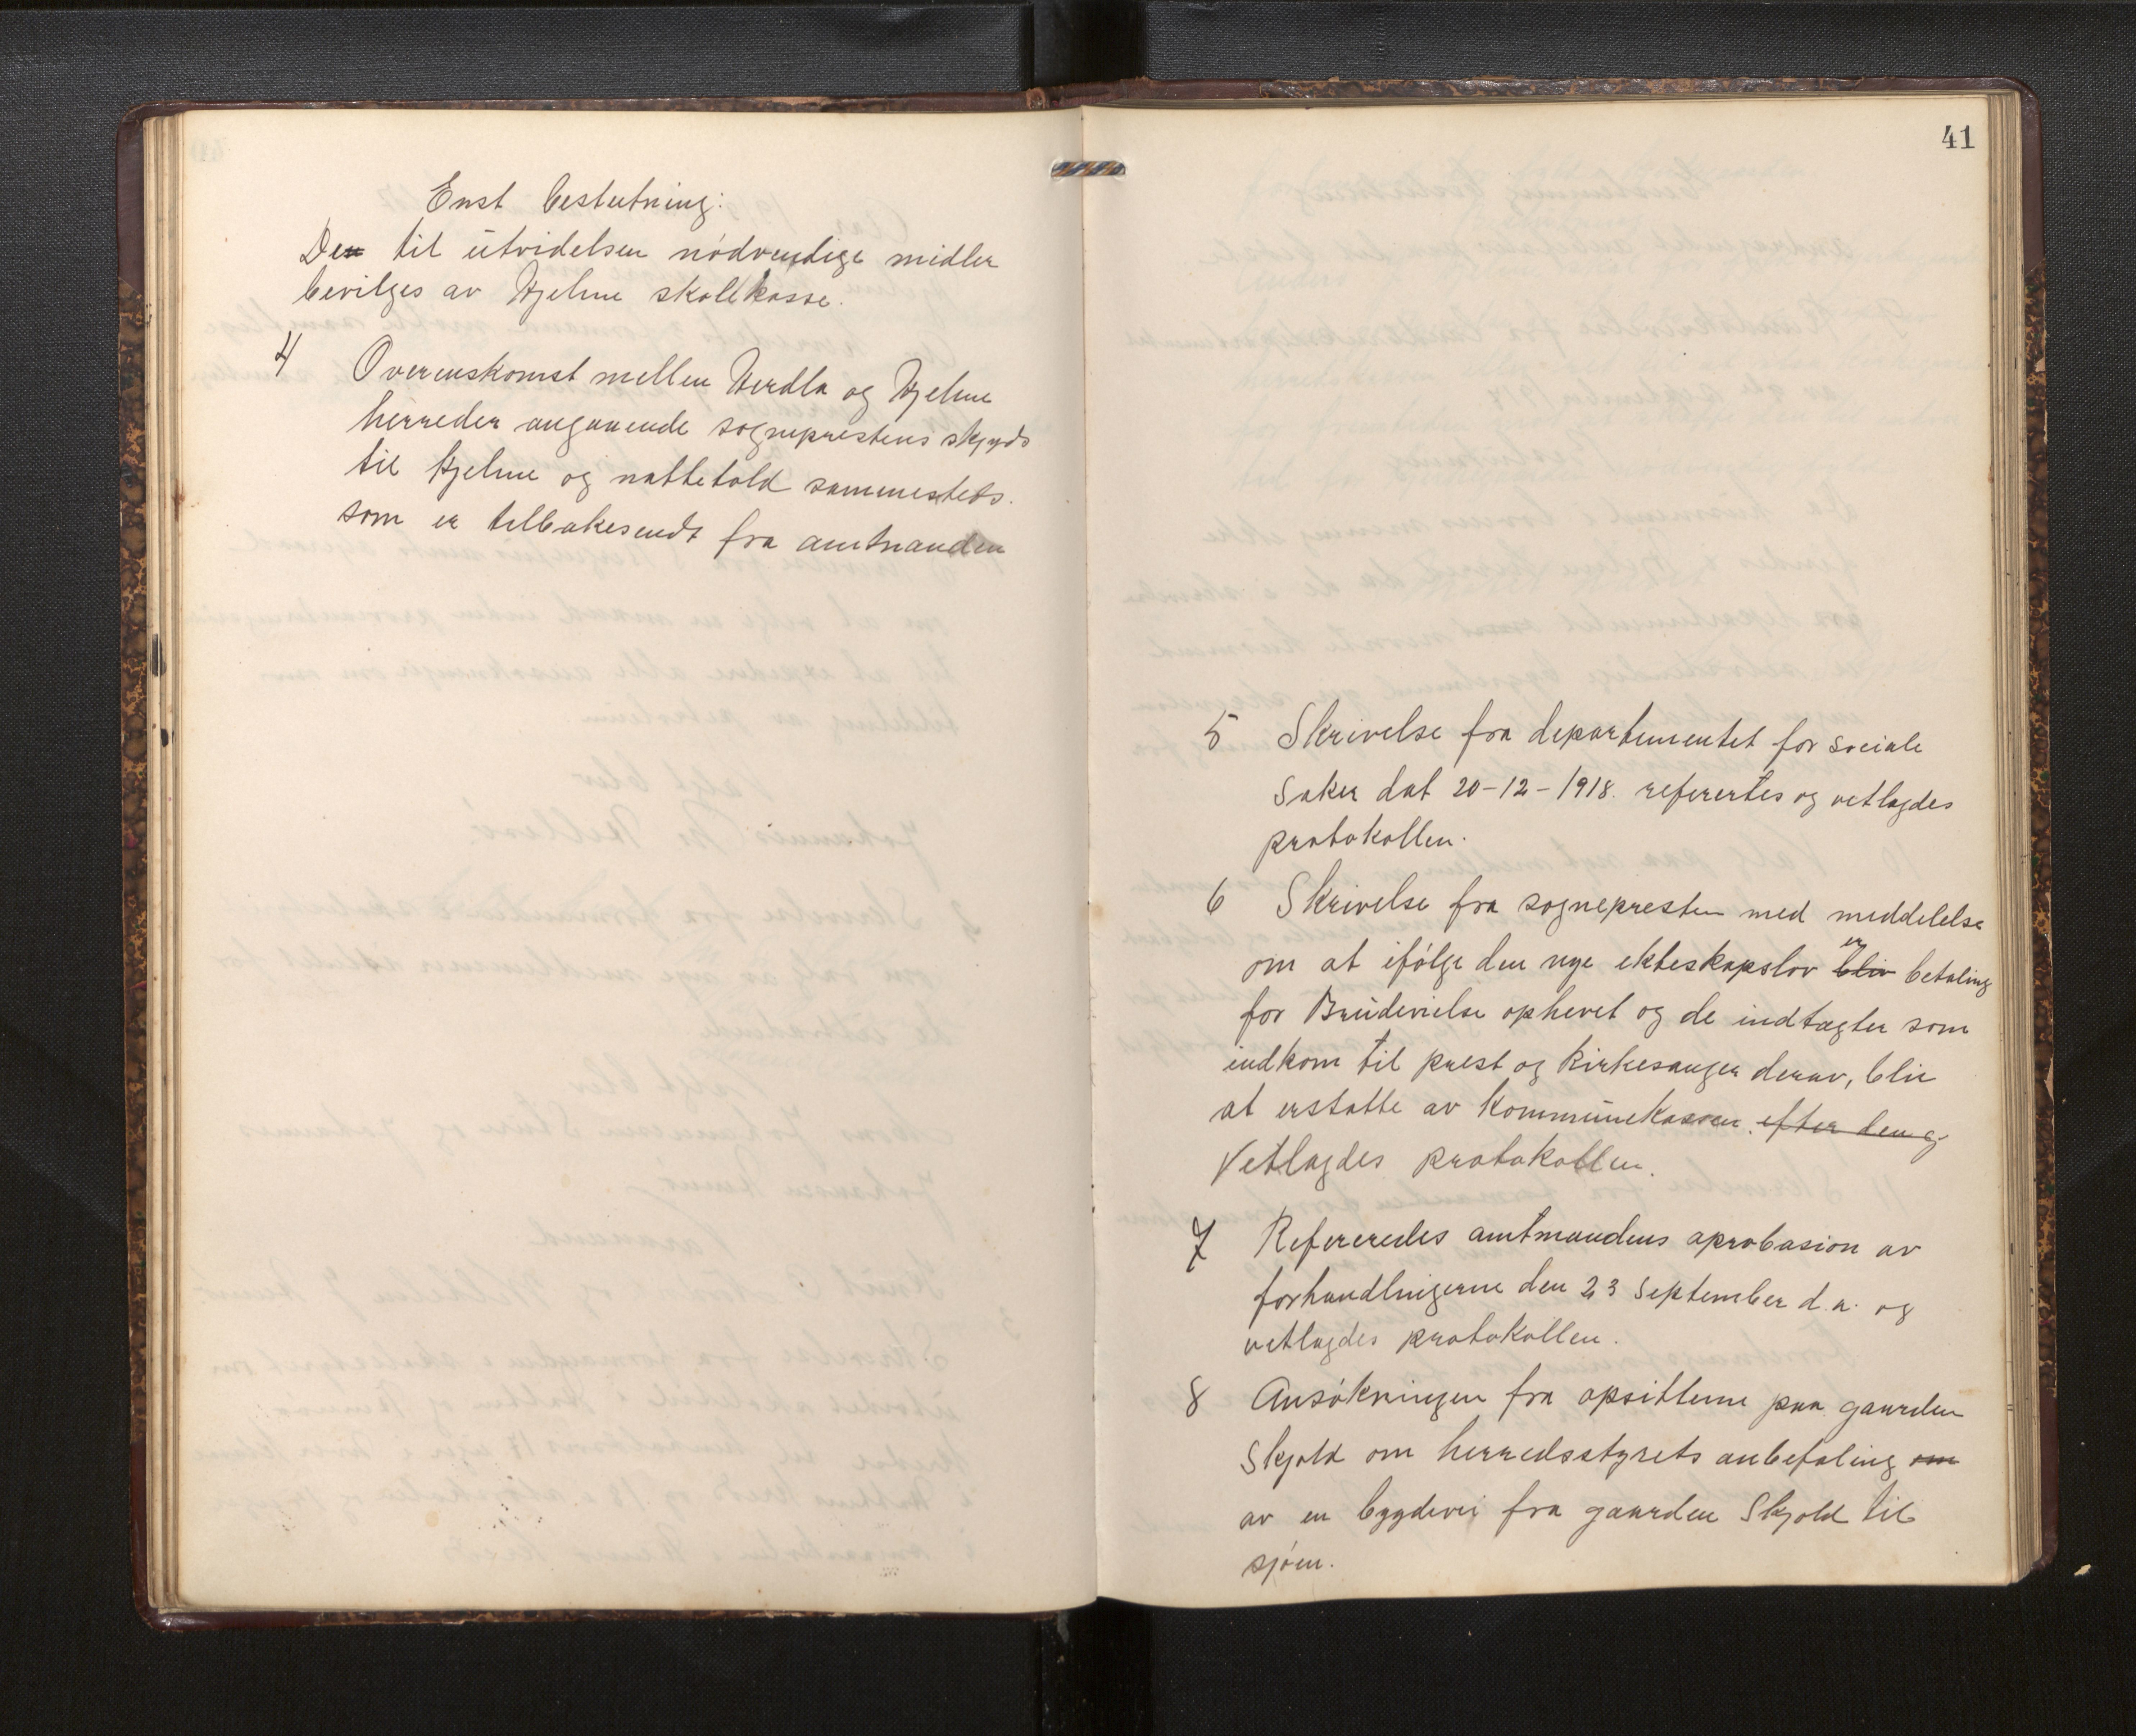 Enst beslutning:
De til utvidelsen nödvendige midler
bevilges av Hjelme skolekasse.
4 Overenskomst mellem Herdla og Hjelme
herreder angaaende sogneprestens skyds
til Hjelme og nattehold sammesteds.
som er tilbakesendt fra amtmanden
41
5 Skrivelse fra departementet for sociale
saker dat 20-12-1918. referertes og vetlagdes
protokollen.
6 Skrivelse fra sognepresten med meddelelse
om at ifölge den nye ekteskapslov bliv er betaling
for Brudevielse ophevet og de indtægter som
indkom til prest og kirkesanger derav, blir
at erstatte av kommunekassen. efter den g
Vetlagdes protokollen.
7 Refereredes amtmandens aprobasion av
forhandlingerne den 23 September d.a. og
vetlagdes protokollen.
8 Ansökningen fra opsitterne paa gaarden
Skjold om herredsstyrets anbefaling om
av en bygdevei fra gaarden Skjold til
sjöen.